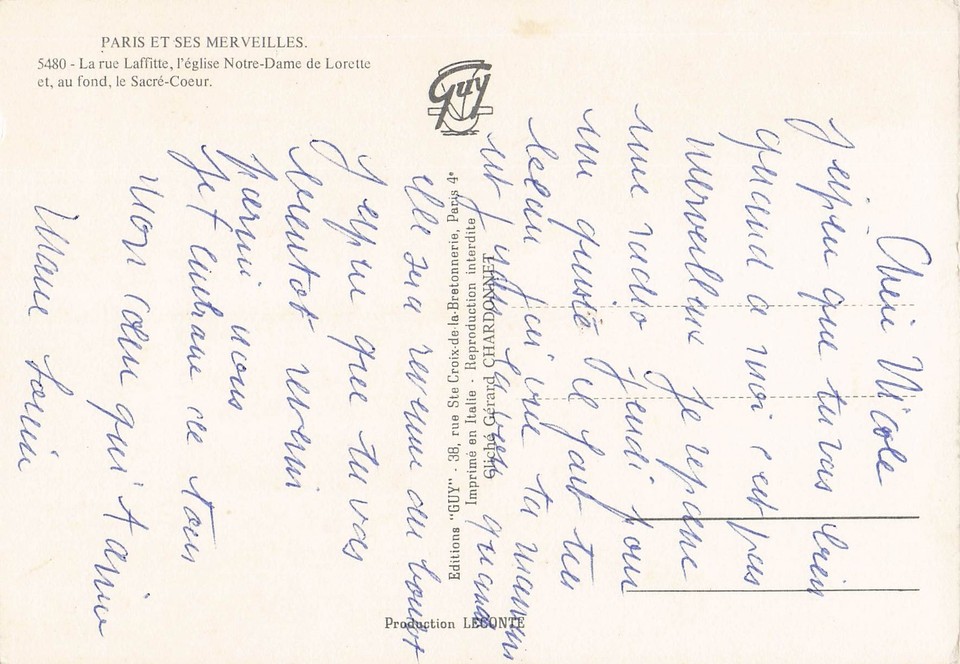 PARIS ET SES MERVEILLES.
5480 - La rue Laffitte, l'église Notre-Dame de Lorette
et, au fond, le Sacré-Coeur.
Guy
Editions "GUY" - 38, rue Ste Croix-de-la-Bretonnerie, Paris 4e
Imprimé en Italie - Reproduction interdite
Cliché Gérard CHARDONNET
Production LECONTE
Chère Nicole
J espère que tu vas bien
quand a moi c est pas
merveilleux Je repasse
une radio Jeudi pour
il fait très
beau j ai vue ta maman
quand
elle sera revenu au boulot
J espère que tu vas
bientot revenir
parmi nous
Je t ce tous
mon coeur qui t aime
Marie Louise